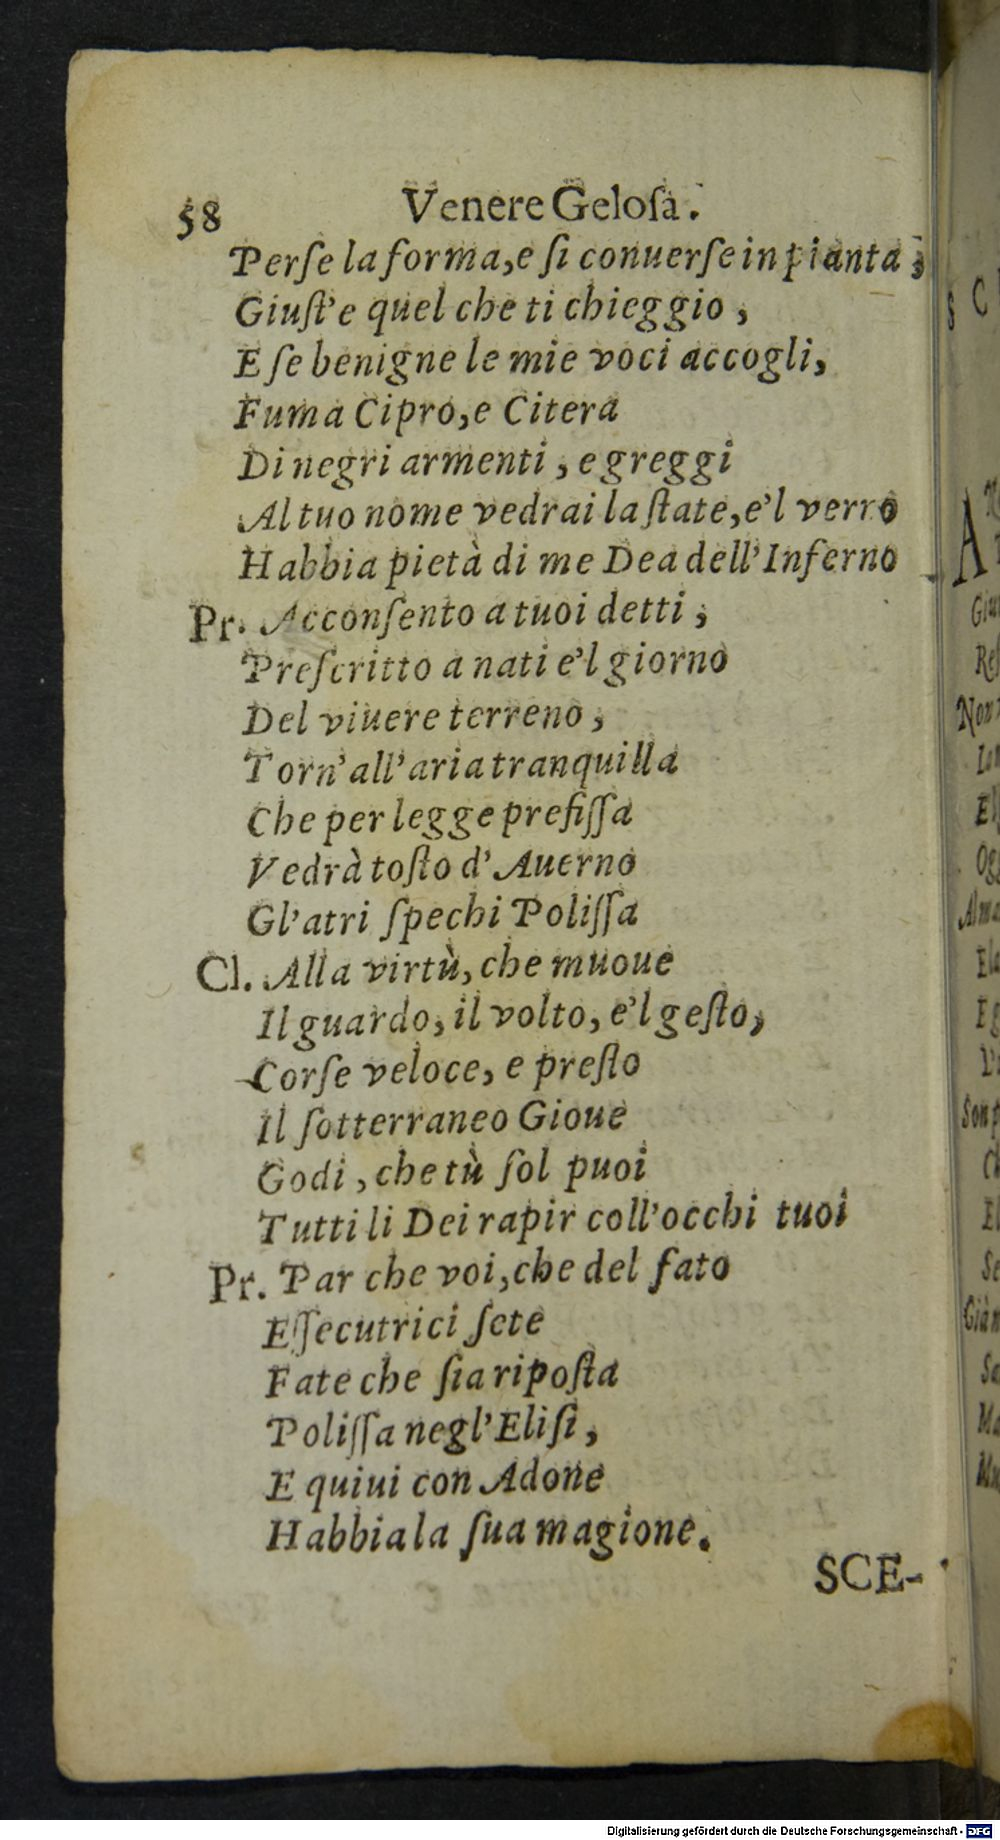 58 Venere Geloſa.
Perſe la forma, e ſi conuerſe in pianta,
Giuſt'e quel che ti chieggio,
E ſe benigne le mie voci accogli,
Fuma Cipro, e Citera
Di negri armenti, e greggi
Al tuo nome vedrai la ſtate, e'l verro
Habbia pietà di me Dea dell'Inferno
Pr. Acconſento a tuoi detti,
Preſcritto a nati e'l giorno
Del viuere terreno,
Torn'all'aria tranquilla
Che per legge prefiſſa
Vedrà toſto d'Auerno
Gl'atri ſpechi Poliſſa
Cl. Alla virtù, che muoue
Il guardo, il volto, e'l geſto,
Corſe veloce, e preſto
Il ſotterraneo Gioue
Godi, che tù ſol puoi
Tutti li Dei rapir coll'occhi tuoi
Pr. Par che voi, che del fato
Eſſecutrici ſete
Fate che ſia ripoſta
Poliſſa negl'Eliſi,
E quiui con Adone
Habbia la ſua magione.
SCE-
Digitalisierung gefördert durch die Deutsche Forschungsgemeinschaft - DFG